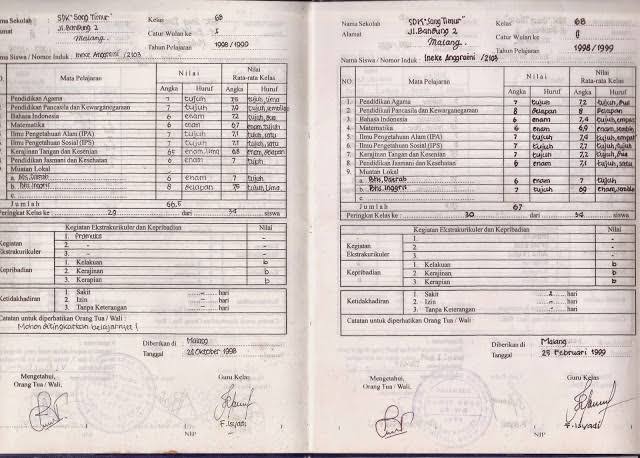 ma Sekolah : SDK "Sang Timur" Kelas : 6B
amat : Jl. Bandung 2 Catur Wulan ke : I
Malang. Tahun Pelajaran : 1998/1999
ma Siswa / Nomor Induk : Ineke Anggraini /2103
O. Mata Pelajaran Nilai Nilai Rata-rata Kelas
Angka Huruf Angka Huruf
Pendidikan Agama 7 tujuh 7,5 tujuh, lima
Pendidikan Pancasila dan Kewarganegaraan 7 tujuh
Bahasa Indonesia 6 enam 7,2 tujuh, dua
Matematika 6 enam 6,7 enam, tujuh
Ilmu Pengetahuan Alam (IPA) 7 tujuh 7,1 tujuh, satu
Ilmu Pengetahuan Sosial (IPS) 7 tujuh 7,1 tujuh, satu
Kerajinan Tangan dan Kesenian enam, lima 6,8 enam, delapan
Pendidikan Jasmani dan Kesehatan 6 enam 7 tujuh
Muatan Lokal
a. Bhs. Daerah 6 enam 7,1 tujuh, satu
b. Bhs. Inggris 8 delapan 7,5 tujuh, lima
c.
Jumlah 66,5
Peringkat Kelas ke : 29 dari 34 siswa
Kegiatan Ekstrakurikuler dan Kepribadian Nilai
Kegiatan Ekstrakurikuler 1. Pramuka -
2. - -
3. - -
Kepribadian 1. Kelakuan b
2. Kerajinan b
3. Kerapian b
Ketidakhadiran 1. Sakit - hari
2. Izin - hari
3. Tanpa Keterangan - hari
Catatan untuk diperhatikan Orang Tua / Wali :
Mohon ditingkatkan belajarnya !
Diberikan di : Malang
Tanggal : 28 Oktober 1998
Mengetahui, Guru Kelas
Orang Tua / Wali,
F. Isyadi
NIP
Nama Sekolah : SDK "Sang Timur" Kelas : 6B
Alamat : Jl. Bandung 2 Catur Wulan ke : II
Malang. Tahun Pelajaran : 1998/1999
Nama Siswa / Nomor Induk : Ineke Anggraini /2103
NO. Mata Pelajaran Nilai Nilai Rata-rata Kelas
Angka Huruf Angka Huruf
1. Pendidikan Agama 7 tujuh 7,2 tujuh, dua
2. Pendidikan Pancasila dan Kewarganegaraan 8 delapan 8 delapan
3. Bahasa Indonesia 6 enam 7,4 tujuh, empat
4. Matematika 6 enam 6,9 enam, sembilan
5. Ilmu Pengetahuan Alam (IPA) 7 tujuh 7,4 tujuh, empat
6. Ilmu Pengetahuan Sosial (IPS) 7 tujuh 7,7 tujuh, tujuh
7. Kerajinan Tangan dan Kesenian 7 tujuh 7,2 tujuh, dua
8. Pendidikan Jasmani dan Kesehatan 6 enam 7,1 tujuh, satu
9. Muatan Lokal
a. Bhs. Daerah 6 enam 7 tujuh
b. Bhs. Inggris 7 tujuh 6,9 enam, sembilan
c.
Jumlah 67
Peringkat Kelas ke : 30 dari 34 siswa
Kegiatan Ekstrakurikuler dan Kepribadian Nilai
Kegiatan Ekstrakurikuler 1. -
2. -
3. -
Kepribadian 1. Kelakuan b
2. Kerajinan b
3. Kerapian b
Ketidakhadiran 1. Sakit hari
2. Izin hari
3. Tanpa Keterangan hari
Catatan untuk diperhatikan Orang Tua / Wali :
Diberikan di : Malang
Tanggal : 25 Februari 1999
Mengetahui, Guru Kelas
Orang Tua / Wali,
F. Isyadi
NIP